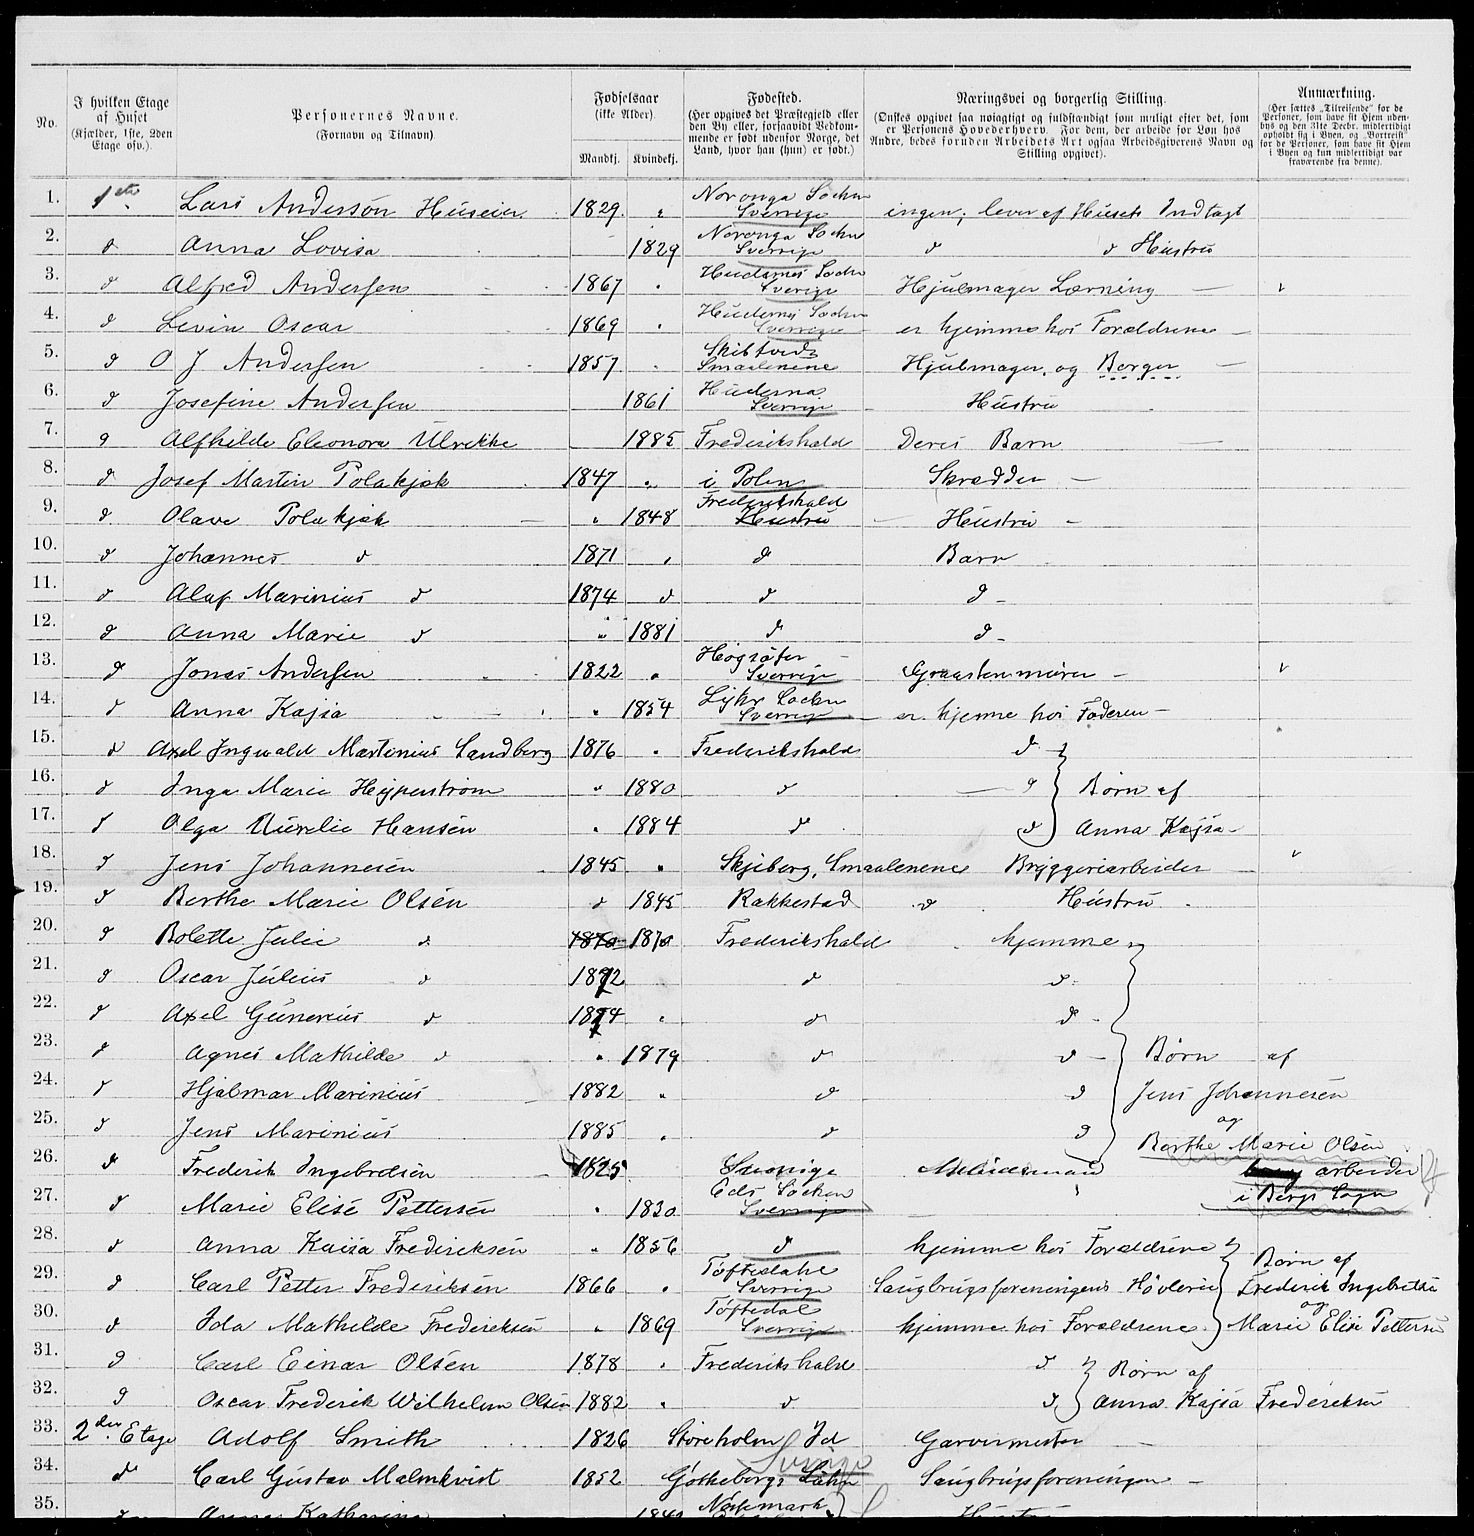 No. I hvilken Etage af Huset (Kjælder, 1ste, 2den Etage osv.). Personernes Navne. (Fornavn og Tilnavn). Fødselsaar (ikke Alder). Mandkj. Kvindekj. Fødested. (Her opgives det Præstegjeld eller den By eller, forsaavidt Vedkommende er født udenfor Norge, det Land, hvor han (hun) er født.) Næringsvei og borgerlig Stilling. (Ønskes opgivet saa nøiagtigt og fuldstændigt som muligt efter det, som er Personens Hovederhverv. For dem, der arbeide for Løn hos Andre, bedes foruden Arbeidets Art ogsaa Arbeidsgiverens Navn og Stilling opgivet). Anmærkning. (Her sættes „Tilreisende" for de Personer, som have sit Hjem udenbys og den 31te Decbr. midlertidigt opholdt sig i Byen, og „Bortreist" for de Personer, som have sit Hjem i Byen og kun midlertidigt var fraværende fra denne).
1. 1ste Lars Anderson Huseier 1829 " Noronga Sockn Sverrige ingen; lever af Husets Indtægt
2. d Anna Lovisa 1829 Noronga Sockn Sverrige d d Hustru
3. d Alfred Andersen 1867 " Sockn Sverige Hjulmager Lærning
4. d Levin Oscar 1869 " Sockn Sverrige er hjemme hos Forældrene
5. d O J Andersen 1857 Skibtvedt Smaalenene Hjulmager og Borger
6. d Josefine Andersen 1861 Huderna Sverrige Hustru
7. d Alfhilde Eleonora Ulrikke 1885 Frederikshald Deres Barn
8. d Josef Martin Polakjak 1847 " i Polen Skrædder
9. d Olava Polakjak " 1848 Frederikshald Hustru Hustru
10. d Johannes d 1871 " d Barn
11. d Alaf Marinius d 1874 d d d
12. d Anna Marie d " 1881 d d
13. d Jonas Andersen 1822 " Högsäter Sverrige Graastensmurer
14. d Anna Kajsa " 1854 Sockn Sverrige er hjemme hos Faderen
15. d Axel Ingvald Martinius Sandberg 1876 " Frederikshald d
16. d Inga Marie Heijerström " 1880 d d Børn af
17. d Olga Aurelie Hansen " 1884 d d Anna Kajsa
18. d Jens Johannesen 1845 " Skjeberg, Smaalenene Bryggeriarbeider
19. d Berthe Marie Olsen d 1845 Rakkestad d Hustru
20. d Bolette Julie d 1870 1870 Frederikshald hjemme
21. d Oscar Julius d 1872 d d
22. d Axel Gunerius d 1874 " d d
23. d Agnes Mathilde d " 1879 d d Børn af
24. d Hjalmar Marinius 1882 " d d Jens Johannesen
og
25. d Jens Marinius 1885 " d d Berthe Marie Olsen
26. d Frederik Ingebretsen 1825 Sverrige arbeider
27. d Marie Elise Pettersen " 1830 Eds Socken Sverrige i Bergs Sogn
28. d Anna Kaisa Frederiksen " 1856 d hjemme hos Forældrene Børn af
29. d Carl Petter Frederiksen 1866 " Töftedahl Sverrige Saugbrugsforeningens Høvlerie Frederik Ingebretsen
og
30. d Ida Mathilde Frederiksen " 1869 Töftedal Sverrige hjemme hos Forældrene Marie Elise Pettersen
31. d Carl Einar Olsen 1878 " Frederikshald d Børn af
32. d Oscar Frederik Wilhelm Olsen 1882 " d d Anna Kajsa Frederiksen
33. 2den Etage Adolf Smith 1826 Storeholm Id Garvermester
34. d Carl Gustav Malmkvist 1852 Götheborgs Lähn Sverige Saugbrugsforeningen
35. d Anna Katharina Nössemark